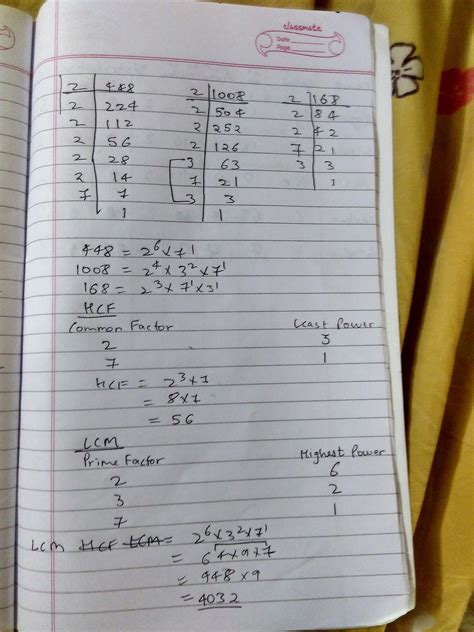 classmate
Date
Page
2 448 2 1008 2 168
2 224 2 504 2 84
2 112 2 252 2 42
2 56 2 126 7 21
2 28 3 63 3 3
2 14 7 21 1
7 7 3 3
1 1
448 = 2⁶ × 7¹
1008 = 2⁴ × 3² × 7¹
168 = 2³ × 7¹ × 3¹
HCF
Common Factor Least Power
2 3
7 1
HCF = 2³ × 7
= 8 × 7
= 56
LCM
Prime Factor Highest Power
2 6
3 2
7 1
LCM HCF LCM = 2⁶ × 3² × 7¹
= 64 × 9 × 7
= 448 × 9
= 4032